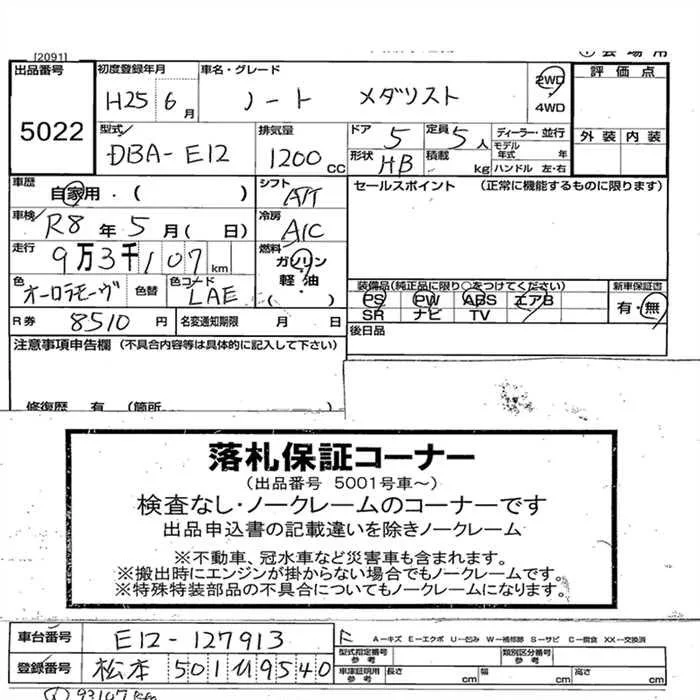 [2091]
出品番号 初度登録年月 車名・グレード 2WD 評価点
5022 H25 6月 ノート メダリスト 4WD 外装 内装
型式 排気量 ドア 5 定員 5人 ディーラー・並行
DBA-E12 1200cc 形状 HB 積載 kg モデル年式 年
ハンドル 左・右
車歴 自家用・( ) シフト A/T セールスポイント (正常に機能するものに限ります)
車検 R8年5月( 日) 冷房 A/C
走行 9万3千107km 燃料 ガソリン・軽油 ( )
色 オーロラモーヴ 色替 色コード LAE 装備品(純正品に限り○をつけてください) 新車保証書
PS PW ABS エアB 有・無
R券 8510円 名変通知期限 月 日 SR ナビ TV
注意事項申告欄 (不具合内容等は具体的に記入して下さい) 後日品
修復歴 有 (箇所
落札保証コーナー
(出品番号 5001号車~)
検査なし・ノークレームのコーナーです
出品申込書の記載違いを除きノークレーム
※不動車、冠水車など災害車も含まれます。
※搬出時にエンジンが掛からない場合でもノークレームです。
※特殊特装部品の不具合についてもノークレームになります。
車台番号 E12-127913 A-キズ E-エクボ U-凹み W-補修跡 S-サビ C-腐食 XX-交換済
型式指定番号 参考 類別区分番号 参考
登録番号 松本 501 9540 車庫証明用 参考 長さ cm 幅 cm 高さ cm
93107km